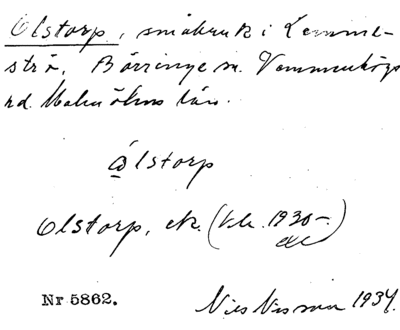 Olstorp, småbruk i Lemme-
strö, Börringe sn. Vemmenhögs
hd. Malmöhus län.
ålstorp
Olstorp, ek. (Vk. 1930-.)
Nr 5862.
Nils Nisson 1934.